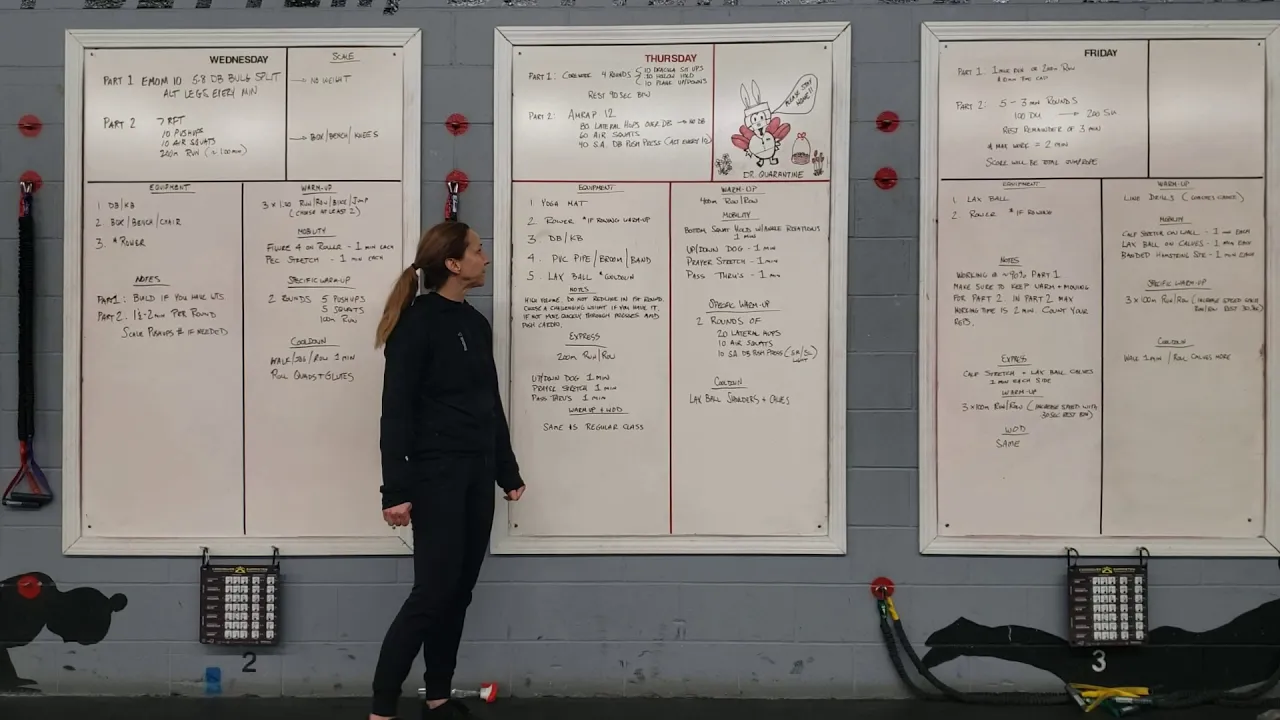 WEDNESDAY
PART 1 EMOM 10 5-8 DB BULG SPLIT
ALT LEGS EVERY MIN
PART 2 7 RFT
10 PUSHUPS
10 AIR SQUATS
200m RUN (≈ 1:00 MIN)
SCALE
→ NO WEIGHT
→ BOX/BENCH/KNEES
EQUIPMENT
1 DB/KB
2. BOX/BENCH/CHAIR
3. * ROWER
NOTES
PART 1: BUILD IF YOU HAVE WTS
PART 2. 1½-2 MIN PER ROUND
SCALE PUSHUPS # IF NEEDED
WARM-UP
3 x 1:30 RUN/ROW/BIKE/JUMP
(CHOOSE AT LEAST 2)
MOBILITY
FIGURE 4 ON ROLLER - 1 MIN EACH
PEC STRETCH - 1 MIN EACH
SPECIFIC WARM-UP
2 ROUNDS 5 PUSHUPS
5 SQUATS
100m RUN
COOLDOWN
WALK/JOG/ROW 1 MIN
ROLL QUADS+GLUTES
THURSDAY
PART 1: COREWORK 4 ROUNDS
10 DRACULA SIT UPS
10 HOLLOW HOLD
10 PLANK UP/DOWNS
REST 90 SEC BTW
PART 2: AMRAP 12
80 LATERAL HOPS OVER DB → NO DB
60 AIR SQUATS
40 S.A. DB PUSH PRESS (ALT EVERY 10)
PLEASE STAY
HOME!!
DR QUARANTINE
EQUIPMENT
1 YOGA MAT
2. ROWER * IF ROWING WARM-UP
3. DB/KB
4. PVC PIPE/BROOM/BAND
5. LAX BALL * COOLDOWN
NOTES
HIGH VOLUME. DO NOT REDLINE IN 1ST ROUND.
CHOOSE A CHALLENGING WEIGHT IF YOU HAVE IT,
IF NOT MOVE QUICKLY THROUGH PRESSES AND
PUSH CARDIO.
EXPRESS
200m RUN/ROW
UP/DOWN DOG 1 MIN
PRAYER STRETCH 1 MIN
PASS THRU'S 1 MIN
WARM-UP + WOD
SAME AS REGULAR CLASS
WARM-UP
400m RUN/ROW
MOBILITY
BOTTOM SQUAT HOLD W/ANKLE ROTATIONS
1 MIN
UP/DOWN DOG - 1 MIN
PRAYER STRETCH - 1 MIN
PASS THRU'S - 1 MIN
SPECIFIC WARM-UP
2 ROUNDS OF
20 LATERAL HOPS
10 AIR SQUATS
10 S.A. DB PUSH PRESS (5R/5L)
LIGHT
COOLDOWN
LAX BALL SHOULDERS + CALVES
FRIDAY
PART 1: 1 MILE RUN OR 2000m ROW
PART 2: 5 - 3 MIN ROUNDS
100 DU → 200 SU
REST REMAINDER OF 3 MIN
* MAX WORK = 2 MIN
SCORE WILL BE TOTAL
EQUIPMENT
1 LAX BALL
2 ROWER * IF ROWING
NOTES
WORKING @ ~90% PART 1.
MAKE SURE TO KEEP WARM + MOVING
FOR PART 2. IN PART 2 MAX
WORKING TIME IS 2 MIN. COUNT YOUR
REPS.
EXPRESS
CALF STRETCH + LAX BALL CALVES
1 MIN EACH SIDE
WARM-UP
3 x 100m RUN/ROW (INCREASE SPEED WITH
30 SEC REST BTW)
WOD
SAME
WARM-UP
LINE DRILLS (COACHES CHOICE)
MOBILITY
CALF STRETCH ON WALL - 1 MIN EACH
LAX BALL ON CALVES - 1 MIN EACH
BANDED HAMSTRING STR - 1 MIN EACH
SPECIFIC WARM-UP
3 x 100m RUN/ROW (INCREASE SPEED EACH
RUN/ROW REST 30 SEC)
COOLDOWN
WALK 1 MIN / ROLL CALVES MORE
2
3